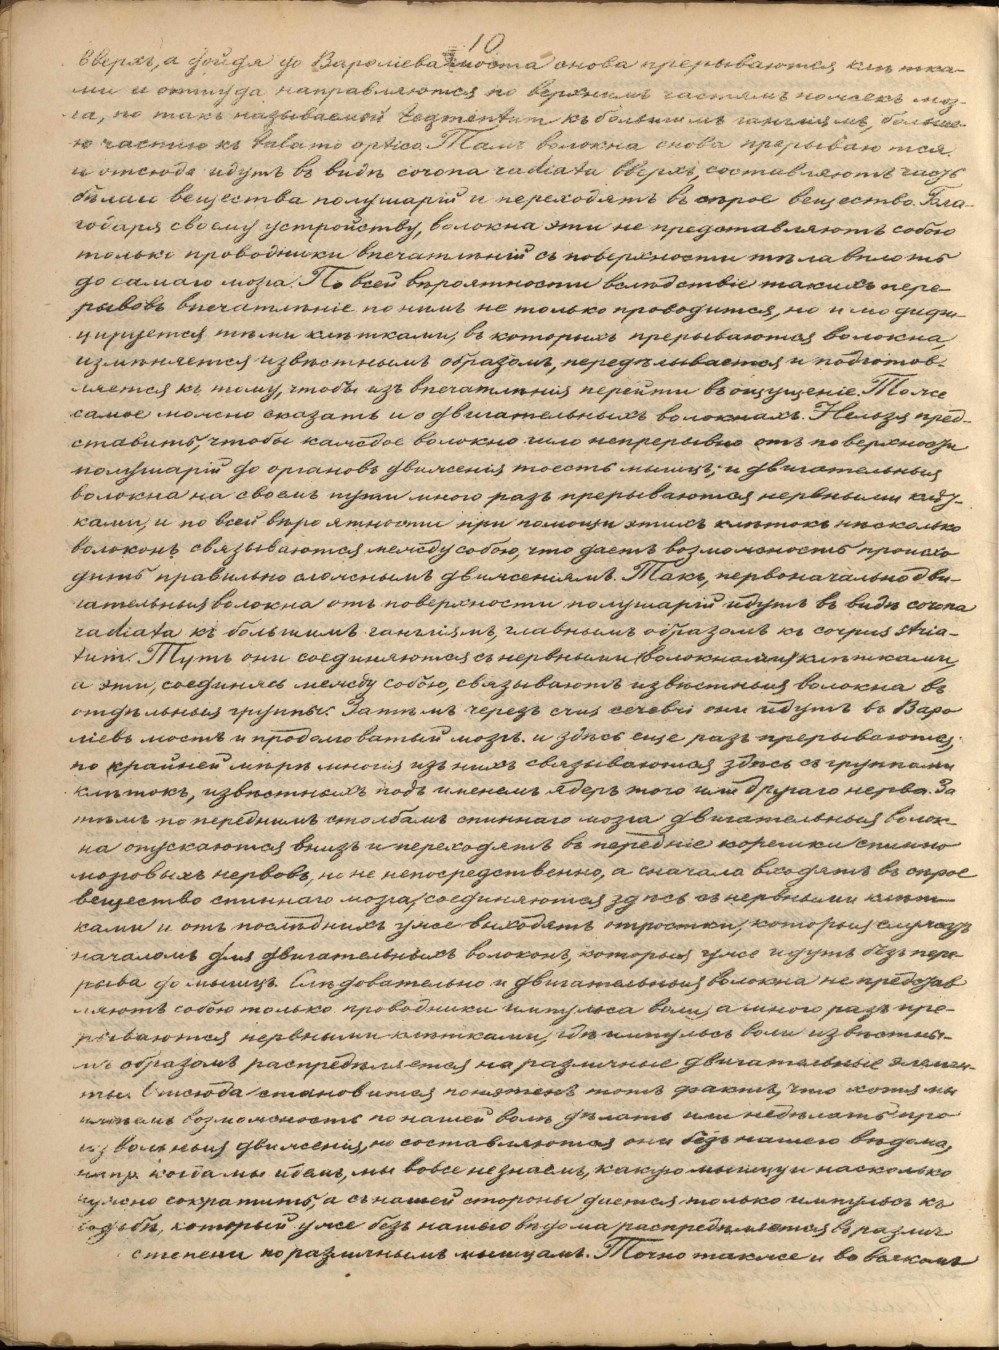 10
вверхъ, а дойдя до Вароліева моста снова прерываются клѣтка-
ми и оттуда направляются по верхнимъ частямъ ножекъ моз-
га, по такъ называемой tegmentum къ большимъ гангліямъ, больше-
ю частію къ talamo optico. Тамъ волокна снова прерываются
и отсюда идутъ въ видѣ corona radiata вверхъ, составляютъ часть
бѣлаго вещества полушарій и переходятъ въ сѣрое вещество. Бла-
годаря своему устройству, волокна эти не представляютъ собою
только проводники впечатлѣній съ поверхности тѣла вплоть
до самаго мозга. По всей вѣроятности вслѣдствіе такихъ пере-
рывовъ впечатлѣніе по нимъ не только проводится, но и модифи-
цируется тѣми клѣтками, въ которыхъ прерываются волокна,
измѣняется извѣстнымъ образомъ, передѣлывается и подготов-
ляется къ тому, чтобы изъ впечатлѣнія перейти въ ощущеніе. Тоже
самое можно сказать и о двигательныхъ волокнахъ. Нельзя пред-
ставить, чтобы каждое волокно шло непрерывно отъ поверхности
полушарій до органовъ движенія тоесть мышцъ; и двигательныя
волокна на своемъ пути много разъ прерываются нервными клѣт-
ками, и по всей вѣроятности при помощи этихъ клѣтокъ нѣсколько
волоконъ связываются между собою, что даетъ возможность происхо
дить правильно сложнымъ движеніямъ. Такъ, первоначально дви-
гательныя волокна отъ поверхности полушарій идутъ въ видѣ corona
radiata къ большимъ гангліямъ, главнымъ образомъ къ corpus stria-
tum. Тутъ они соединяются съ нервными (волокнами) клѣтками,
а эти, соединясь между собою, связываютъ извѣстныя волокна въ
отдѣльныя группы. Затѣмъ черезъ они идутъ въ Варо
ліевъ мостъ и продолговатый мозгъ. и здѣсь еще разъ прерываются;
по крайней мѣрѣ многія изъ нихъ связываются здѣсь съ группами
клѣтокъ, извѣстныхъ подъ именемъ ядеръ того или другаго нерва. За
тѣмъ по переднимъ столбамъ спиннаго мозга двигательныя волок-
на опускаются внизъ и переходятъ въ передніе корешки спинно
мозговыхъ нервовъ, но не непосредственно, а сначала входятъ въ сѣрое
вещество спиннаго мозга, соединяются здѣсь съ нервными клѣт-
ками и отъ послѣднихъ уже выходятъ отростки, которыя служатъ
началомъ для двигательныхъ волоконъ, которыя уже идутъ безъ пере-
рыва до мышцъ. Слѣдовательно и двигательныя волокна не представ
ляютъ собою только проводники импульса воли, а много разъ пре-
рываются нервными клѣтками, гдѣ импульсъ воли извѣстны-
мъ образомъ распредѣляется на различные двигательные элемен-
ты. Отсюда становится понятенъ тотъ фактъ, что хотя мы
имѣемъ возможность по нашей волѣ дѣлать или недѣлать про-
извольныя движенія, но составляются они безъ нашего вѣдома,
напр. когда мы идемъ, мы вовсе не знаемъ, какую мышцу и насколько
нужно сократить, а съ нашей стороны дается только импульсъ къ
ходьбѣ, который уже безъ нашего вѣдома распредѣляется въ различ
степени по различнымъ мышцамъ. Точно также и во всякомъ